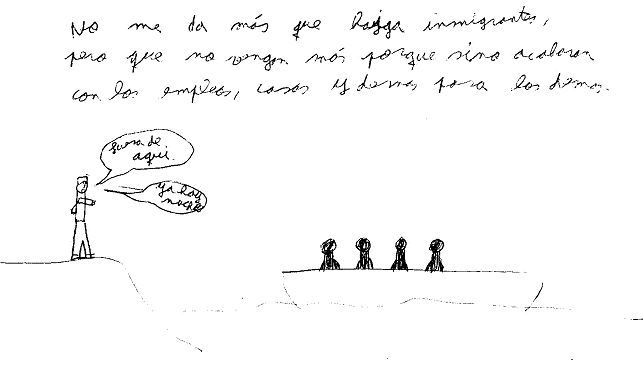 No me da más que haigga inmigrantes,
pero que no vengan más porque sino acabaran
con los empleos, casas y demas para los demas.
fuera de
aqui.
ya hay
muchos